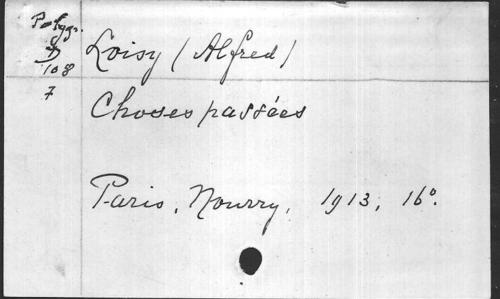 Polygr.
D
108
7
Loisy (Alfred)
Choses passées
Paris, Nourry, 1913, 16°.